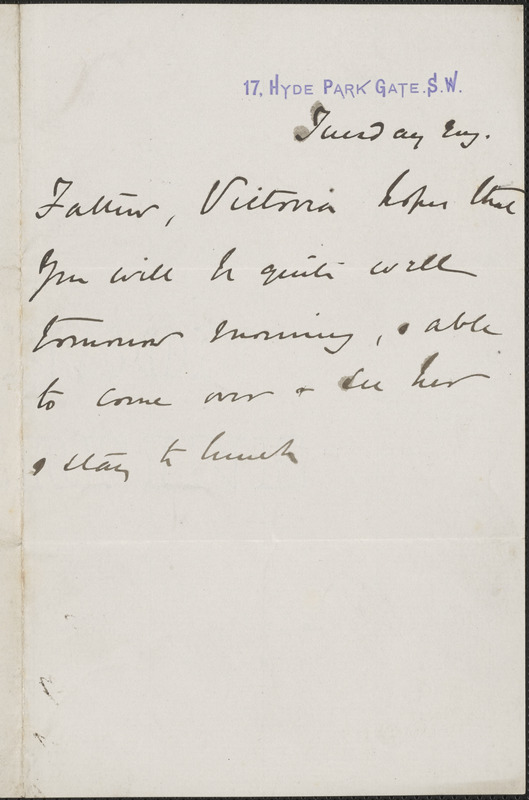 17, HYDE PARK GATE. S.W.
Tuesday Evg.
Father, Victoria hopes that
you will be quite well
tomorrow morning, & able
to come over & see her
& stay to lunch